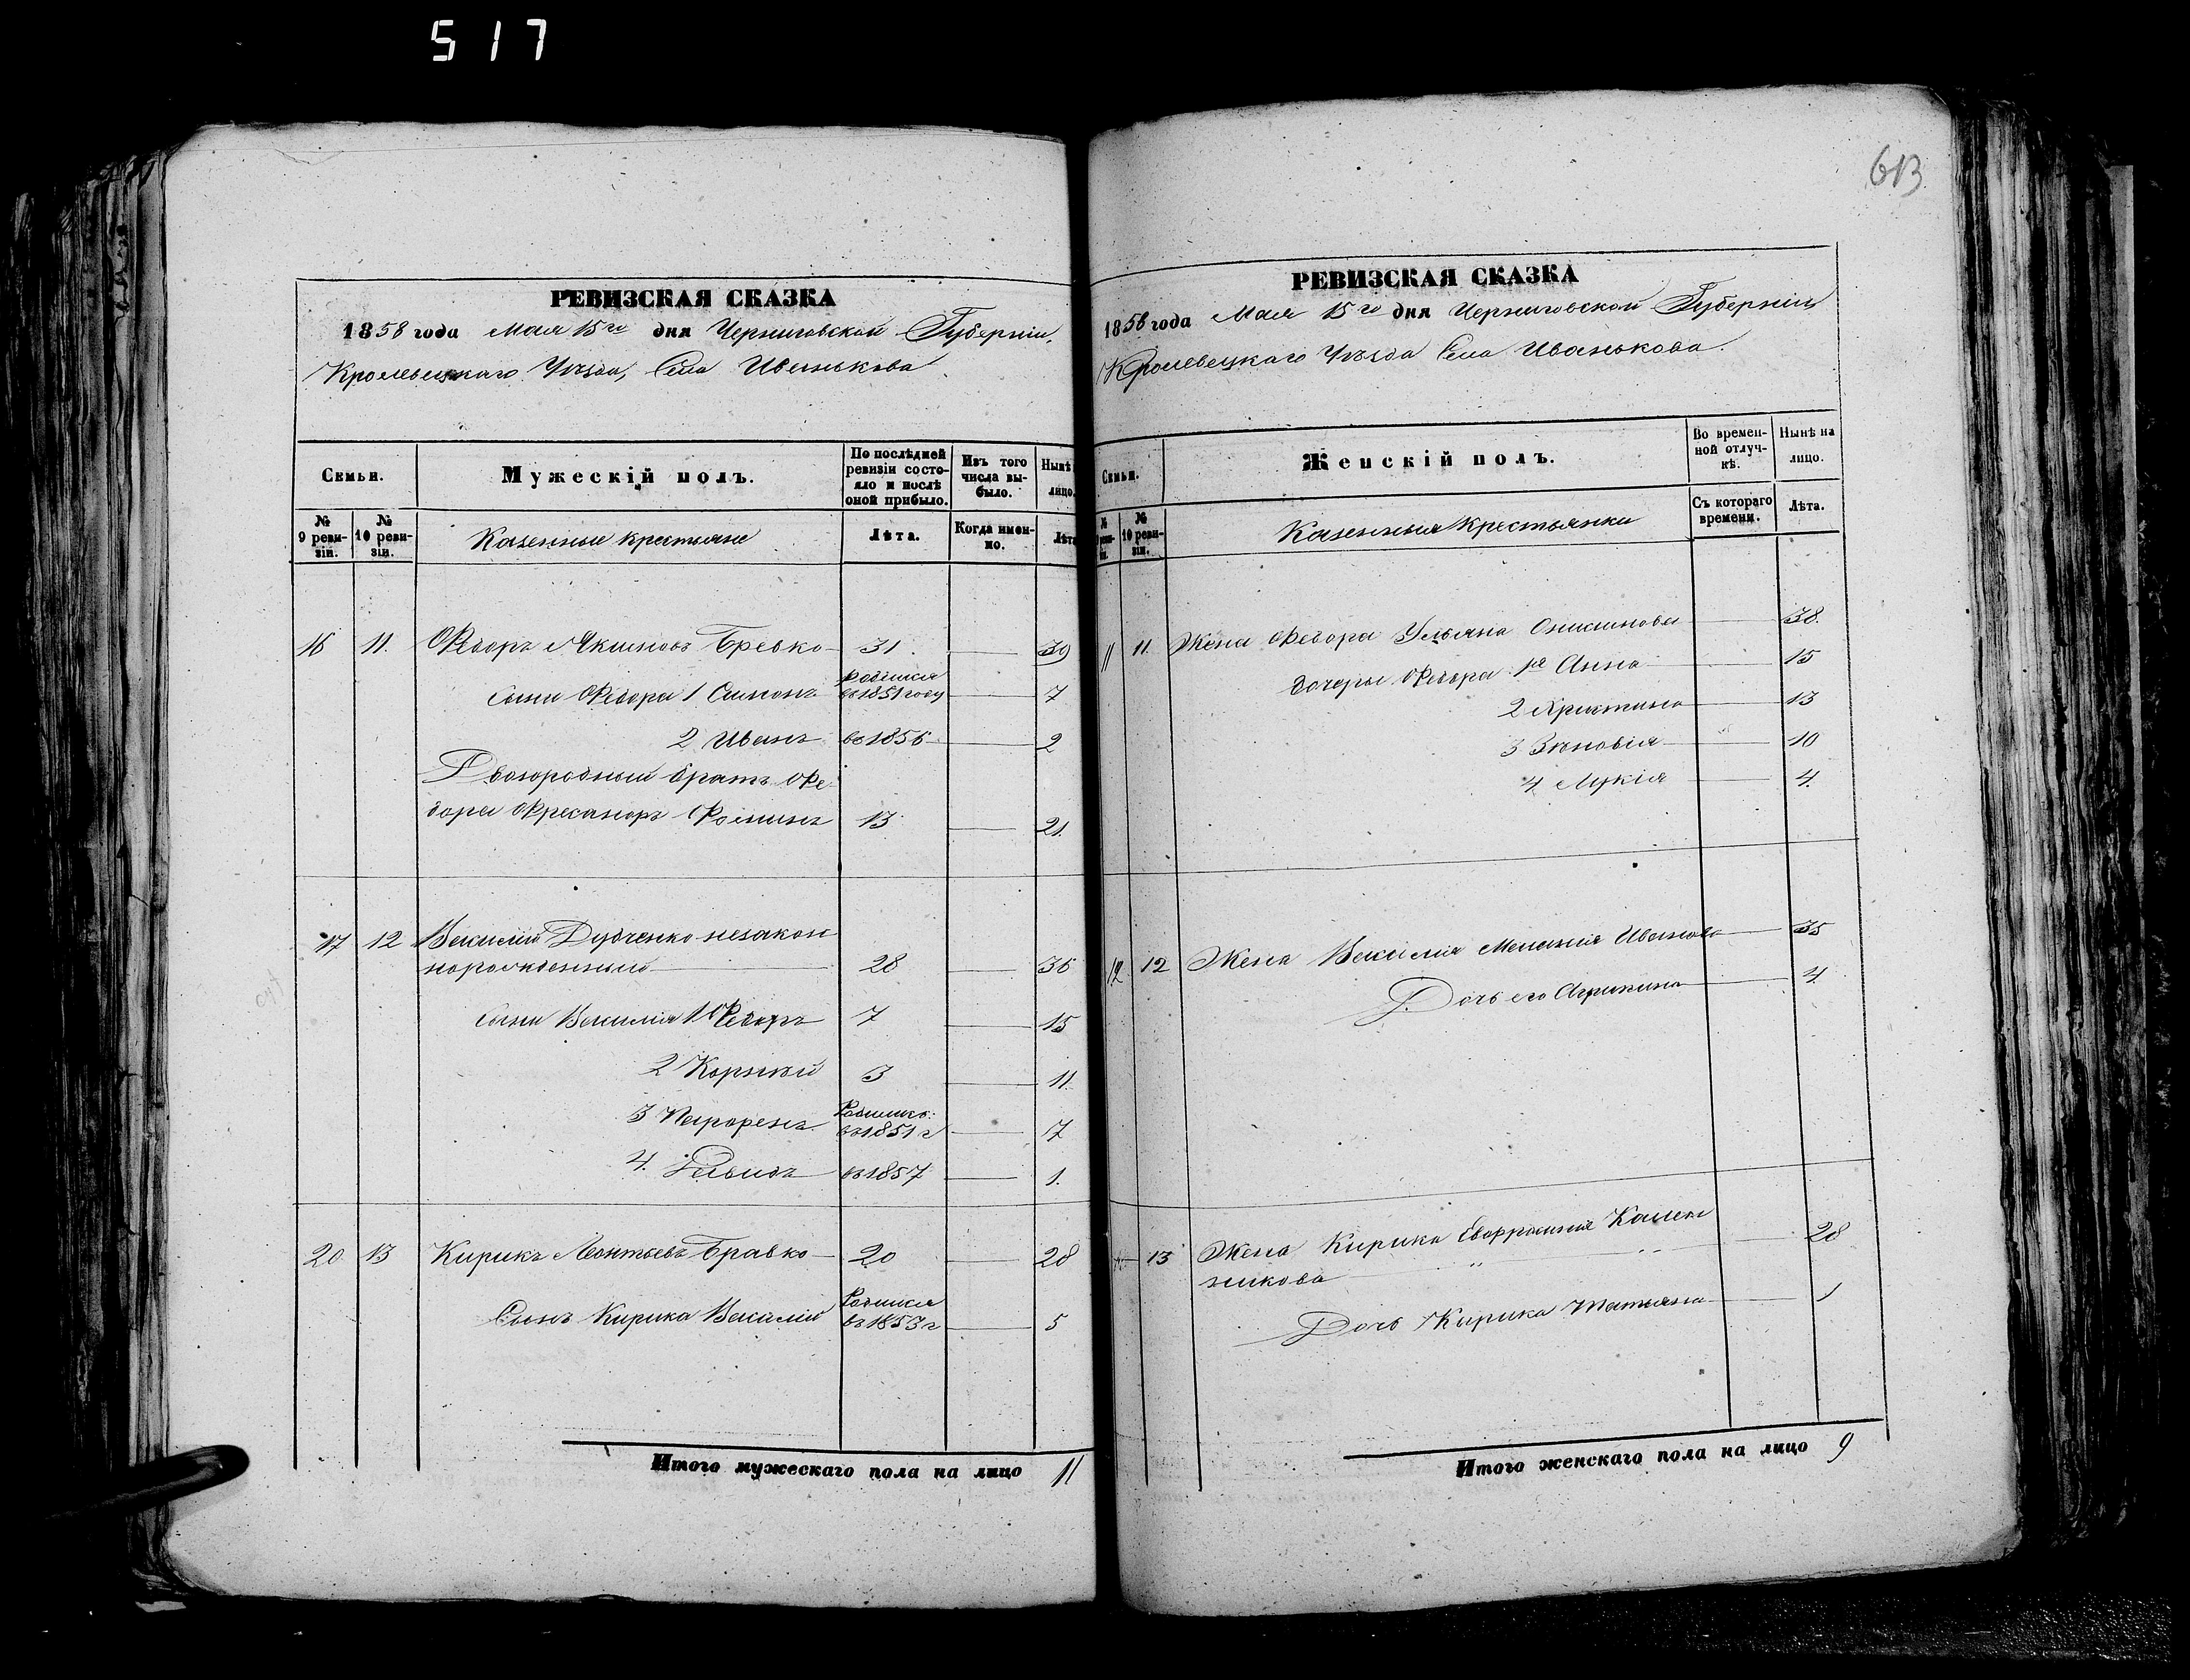 517
613
РЕВИЗСКАЯ СКАЗКА
1858 года Мая 15го дня Черниговской Губерніи,
Кролевецкаго Уѣзда, Села Иванькова
Семьи.
Мужескій полъ.
По послѣдней ревизіи состояло и послѣ оной прибыло.
Изъ того числа выбыло.
Нынѣ лицо.
№ 9 ревизіи.
№ 10 ревизіи.
Казенные крестьяне
Лѣта.
Когда именно.
Лѣта
16 11. Ѳедоръ Акимовъ Бревко 31. 39
Сыны Ѳедора 1 Симонъ родился въ 1851 году 7
2 Иванъ въ 1856 2
Двоюродный братъ Ѳе
дора Фоминъ 13 21.
17 12 Василій Дудченко незакон
норожденный 28 36
Сыны Василія 1 Ѳедоръ 7 15
2 Корнѣй 3 11.
3 Парфенъ Родился въ 1851 г 7
4. Давидъ въ 1857 1.
20 13 Кирикъ Леонтьевъ Бравко 20 28
Сынъ Кирика Василій Родился въ 1853 г 5
Итого мужескаго пола на лицо 11
РЕВИЗСКАЯ СКАЗКА
1858 года Мая 15го дня Черниговской Губерніи
Кролевецкаго Уѣзда Села Иванькова.
Семьи.
Женскій полъ.
Во временной отлучкѣ.
Нынѣ на лицо.
№ ревизіи.
№ 10 ревизіи.
Казенныя Крестьянки
Съ котораго времени.
Лѣта.
11 11. Жена Ѳедора Ульяна Онисимова 38.
дочеры Ѳедора 1я Анна 15
2 Христина 13
3 Зѣновія 10
4 Лукія 4.
12 12 Жена Василія Меланія Иванова 35
Дочь его Агрипина 4.
13 Жена Кирика Евфросинія Калек
никова 28
Дочь Кирика Татьяна 1
Итого женскаго пола на лицо 9